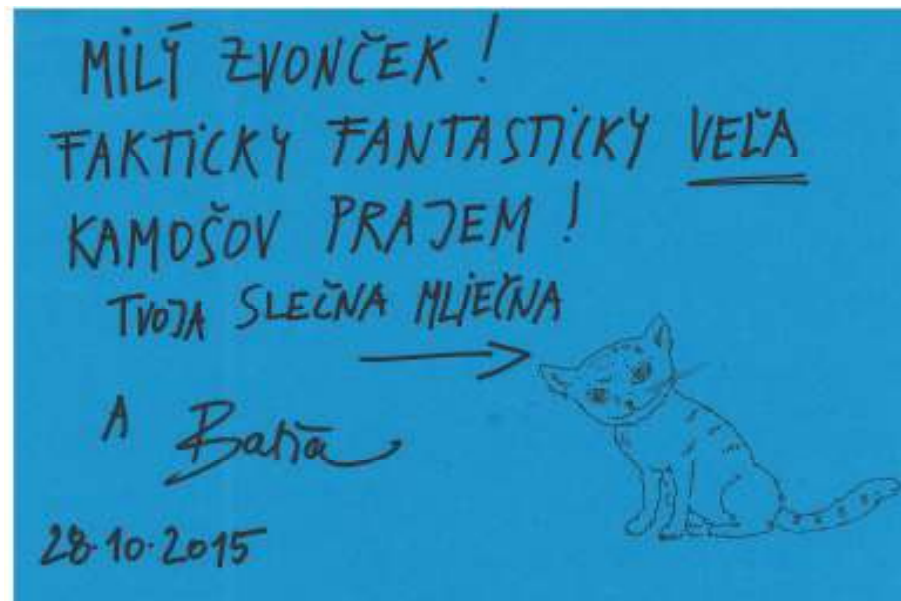 MILÝ ZVONČEK !
FAKTICKY FANTASTICKY VEĽA
KAMOŠOV PRAJEM !
TVOJA SLEČNA MLIEČNA
A
28.10.2015